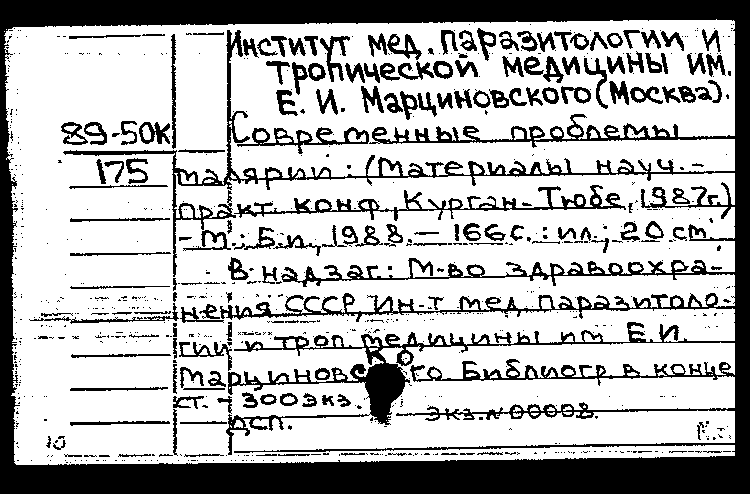 Институт мед. паразитологии и
тропической медицины им.
Е. И. Марциновского (Москва).
89-50К
175
Современные проблемы
малярии: (Материалы науч.-
практ. конф., Курган-Тюбе, 1987г.)
- М.: Б.и., 1988. — 166 с.: ил.; 20 см.
В надзаг.: М-во здравоохра-
нения СССР, Ин-т мед. паразитоло-
гии и троп. медицины им Е.И.
Марциновского Библиогр. в конце
ст. - 300 экз.
ДСП.
Экз. № 00008.
10